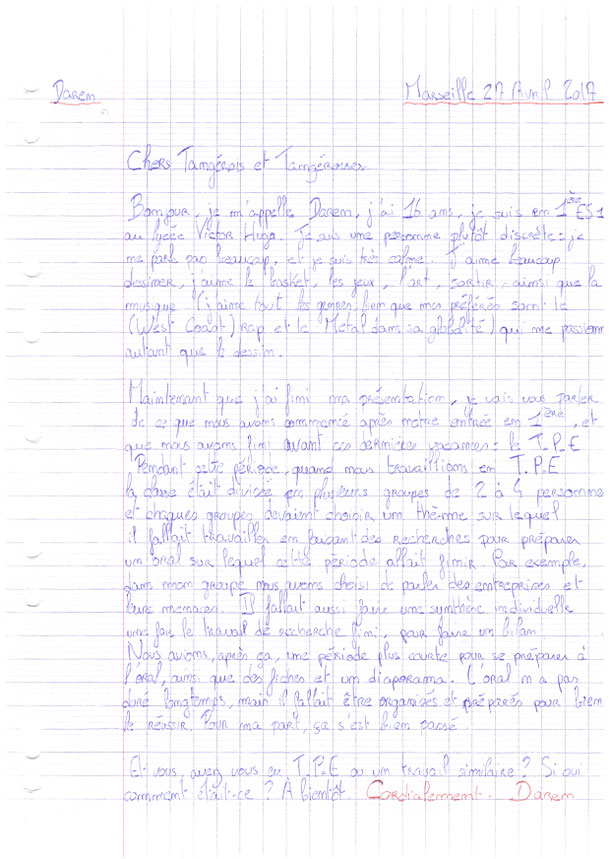 Darem
Marseille 27 Avril 2017
Chers Tangérois et Tangéroises
Bonjour, je m'appelle Darem, j'ai 16 ans, je suis en 1ère ES1
au lycée Victor Hugo. Je suis une personne plutôt discrète : je
ne parle pas beaucoup, et je suis très calme. J'aime beaucoup
dessiner, j'aime le basket, les jeux, l'art, sortir, ainsi que la
musique (j'aime tout les genres, bien que mes préférés sont le
(West Coast) Rap et le Metal dans sa globalité) qui me passionne
autant que le dessin.
Maintenant que j'ai fini ma présentation, je vais vous parler
de ce que nous avons commencé après notre entrée en 1ère, et
que nous avons fini avant ces dernières vacances : le T.P.E
Pendant cette période, quand nous travaillions en T.P.E
la classe était divisée en plusieurs groupes de 2 à 4 personnes
et chaques groupes devaient choisir un thème sur lequel
il fallait travailler en faisant des recherches pour préparer
un oral sur lequel cette période allait finir. Par exemple,
dans mon groupe nous avons choisi de parler des entreprises et
leurs menaces. Il fallait aussi faire une synthèse individuelle
une fois le travail de recherche fini, pour faire un bilan.
Nous avions, après ça, une période plus courte pour se préparer à
l'oral, ainsi que des fiches et un diaporama. L'oral n'a pas
duré longtemps, main il fallait être organisés et préparés pour bien
le réussir. Pour ma part, ça s'est bien passé.
Et vous, avez vous eu T.P.E ou un travail similaire ? Si oui
comment était-ce ? À bientôt. Cordialement. Darem